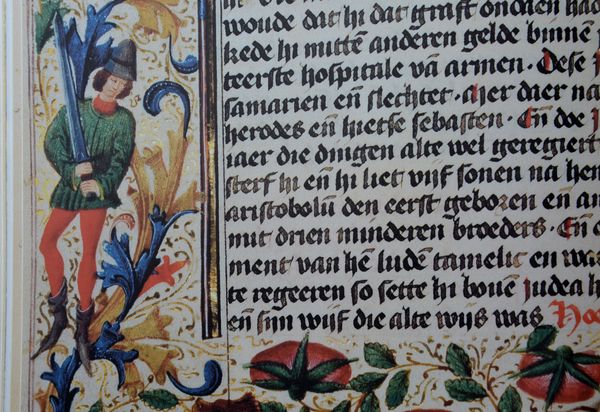 woude dat hi dat graft ondaen had
kede hi mittē anderen gelde binnen
teerste hospitale vā armen · Dese
samarien eñ slechtet · Mer daer na
herodes eñ hietse sebasten · Eñ doe
iaer die dingen alte wel geregiert
sterf hi eñ hi liet vijf sonen na hen
aristobolū den eerst geboren eñ an
mit drien minderen broeders · Eñ
ment van hē ludē tamelic en was
te regeeren so sette hi bouē judea h
eñ sijn wijf die alte wijs was Hoe